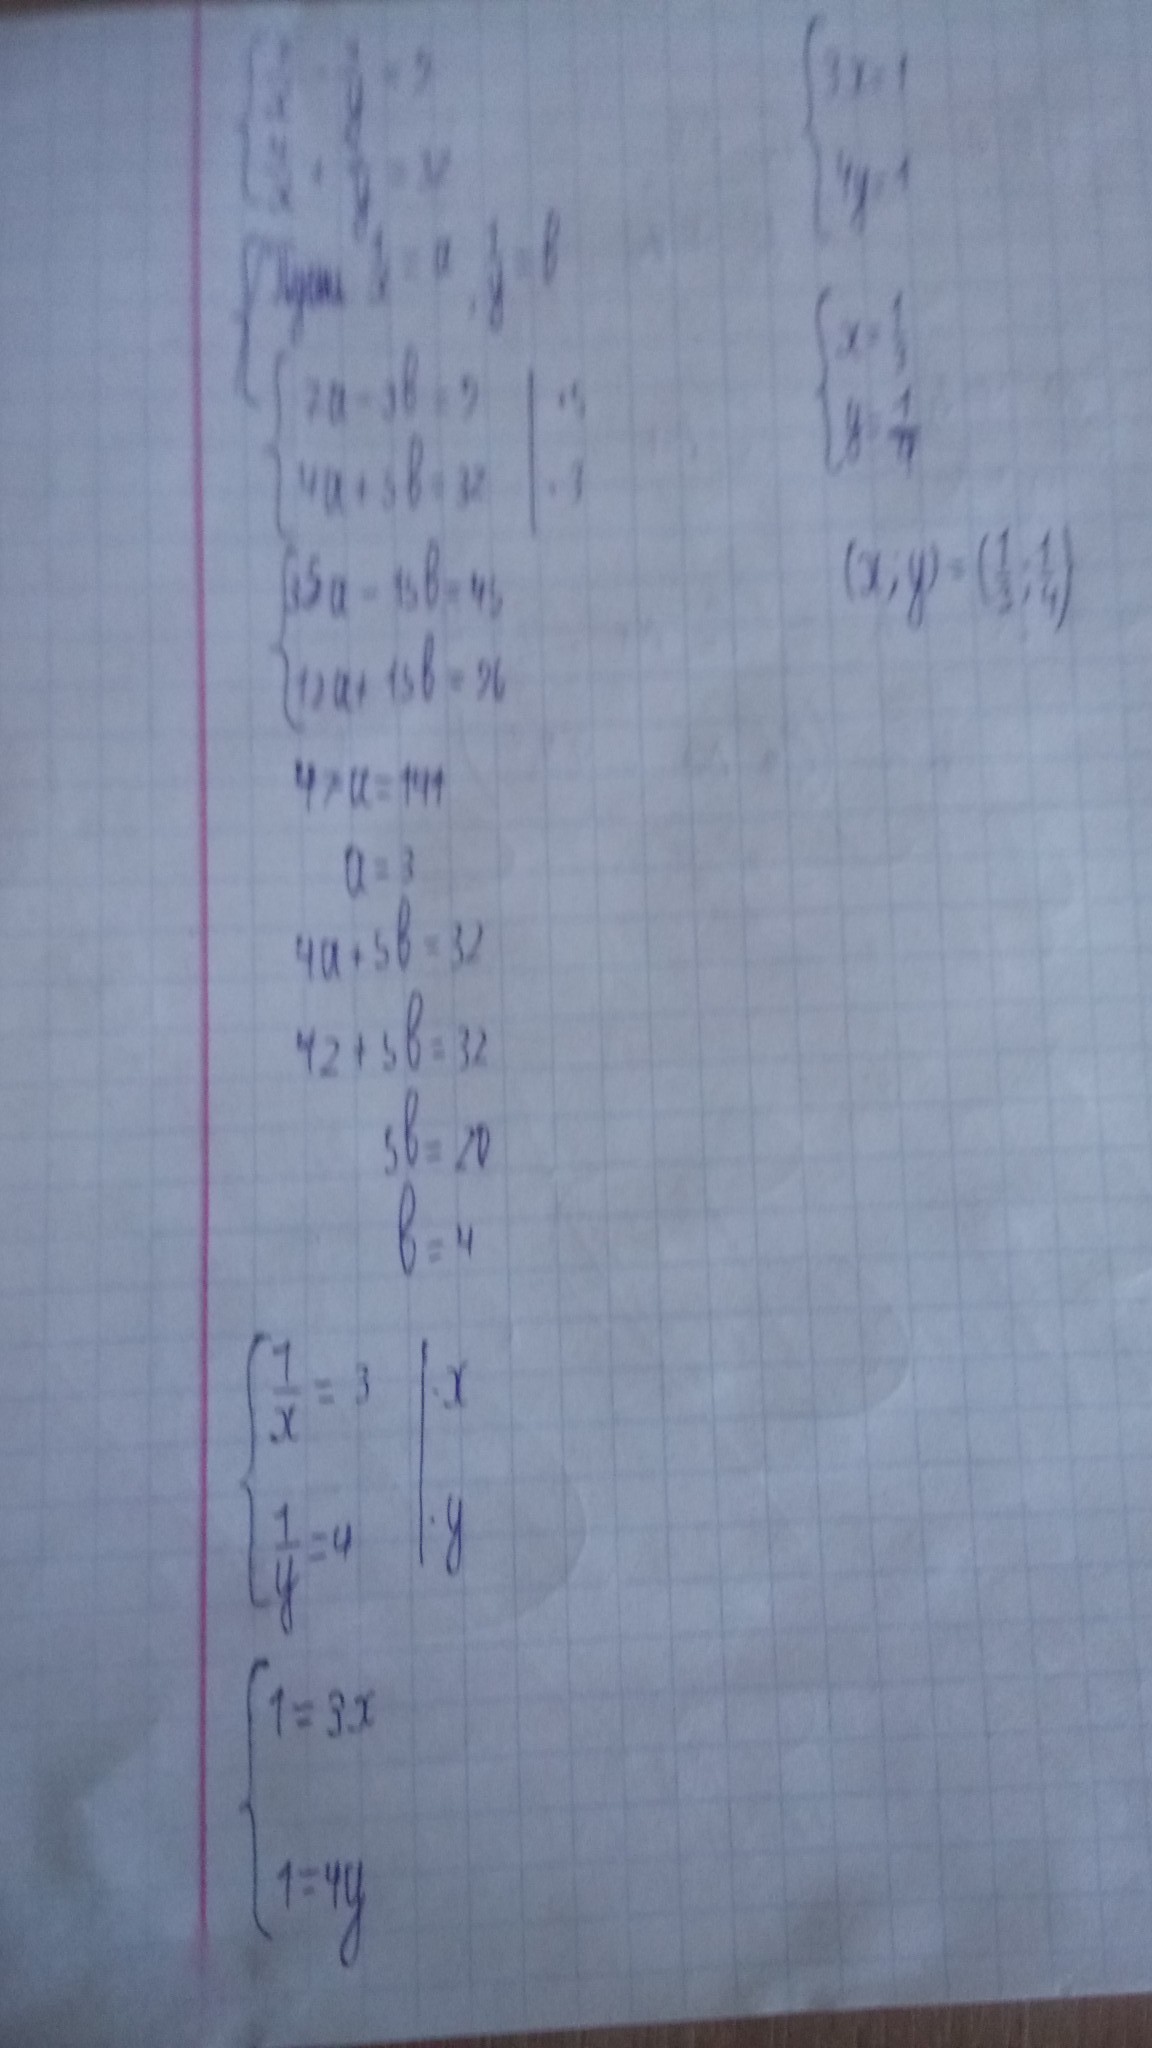 { 7/x - 3/y = 9
4/x + 5/y = 32
{ Пусть 1/x = a, 1/y = b
{ 7a - 3b = 9 | ·5
4a + 5b = 32 | ·3
{ 35a - 15b = 45
12a + 15b = 96
47a = 141
a = 3
4a + 5b = 32
42 + 5b = 32
5b = 20
b = 4
{ 1/x = 3 | ·x
1/y = 4 | ·y
{ 1 = 3x
1 = 4y
{ 3x = 1
4y = 1
{ x = 1/3
y = 1/4
(x; y) = (1/3; 1/4)